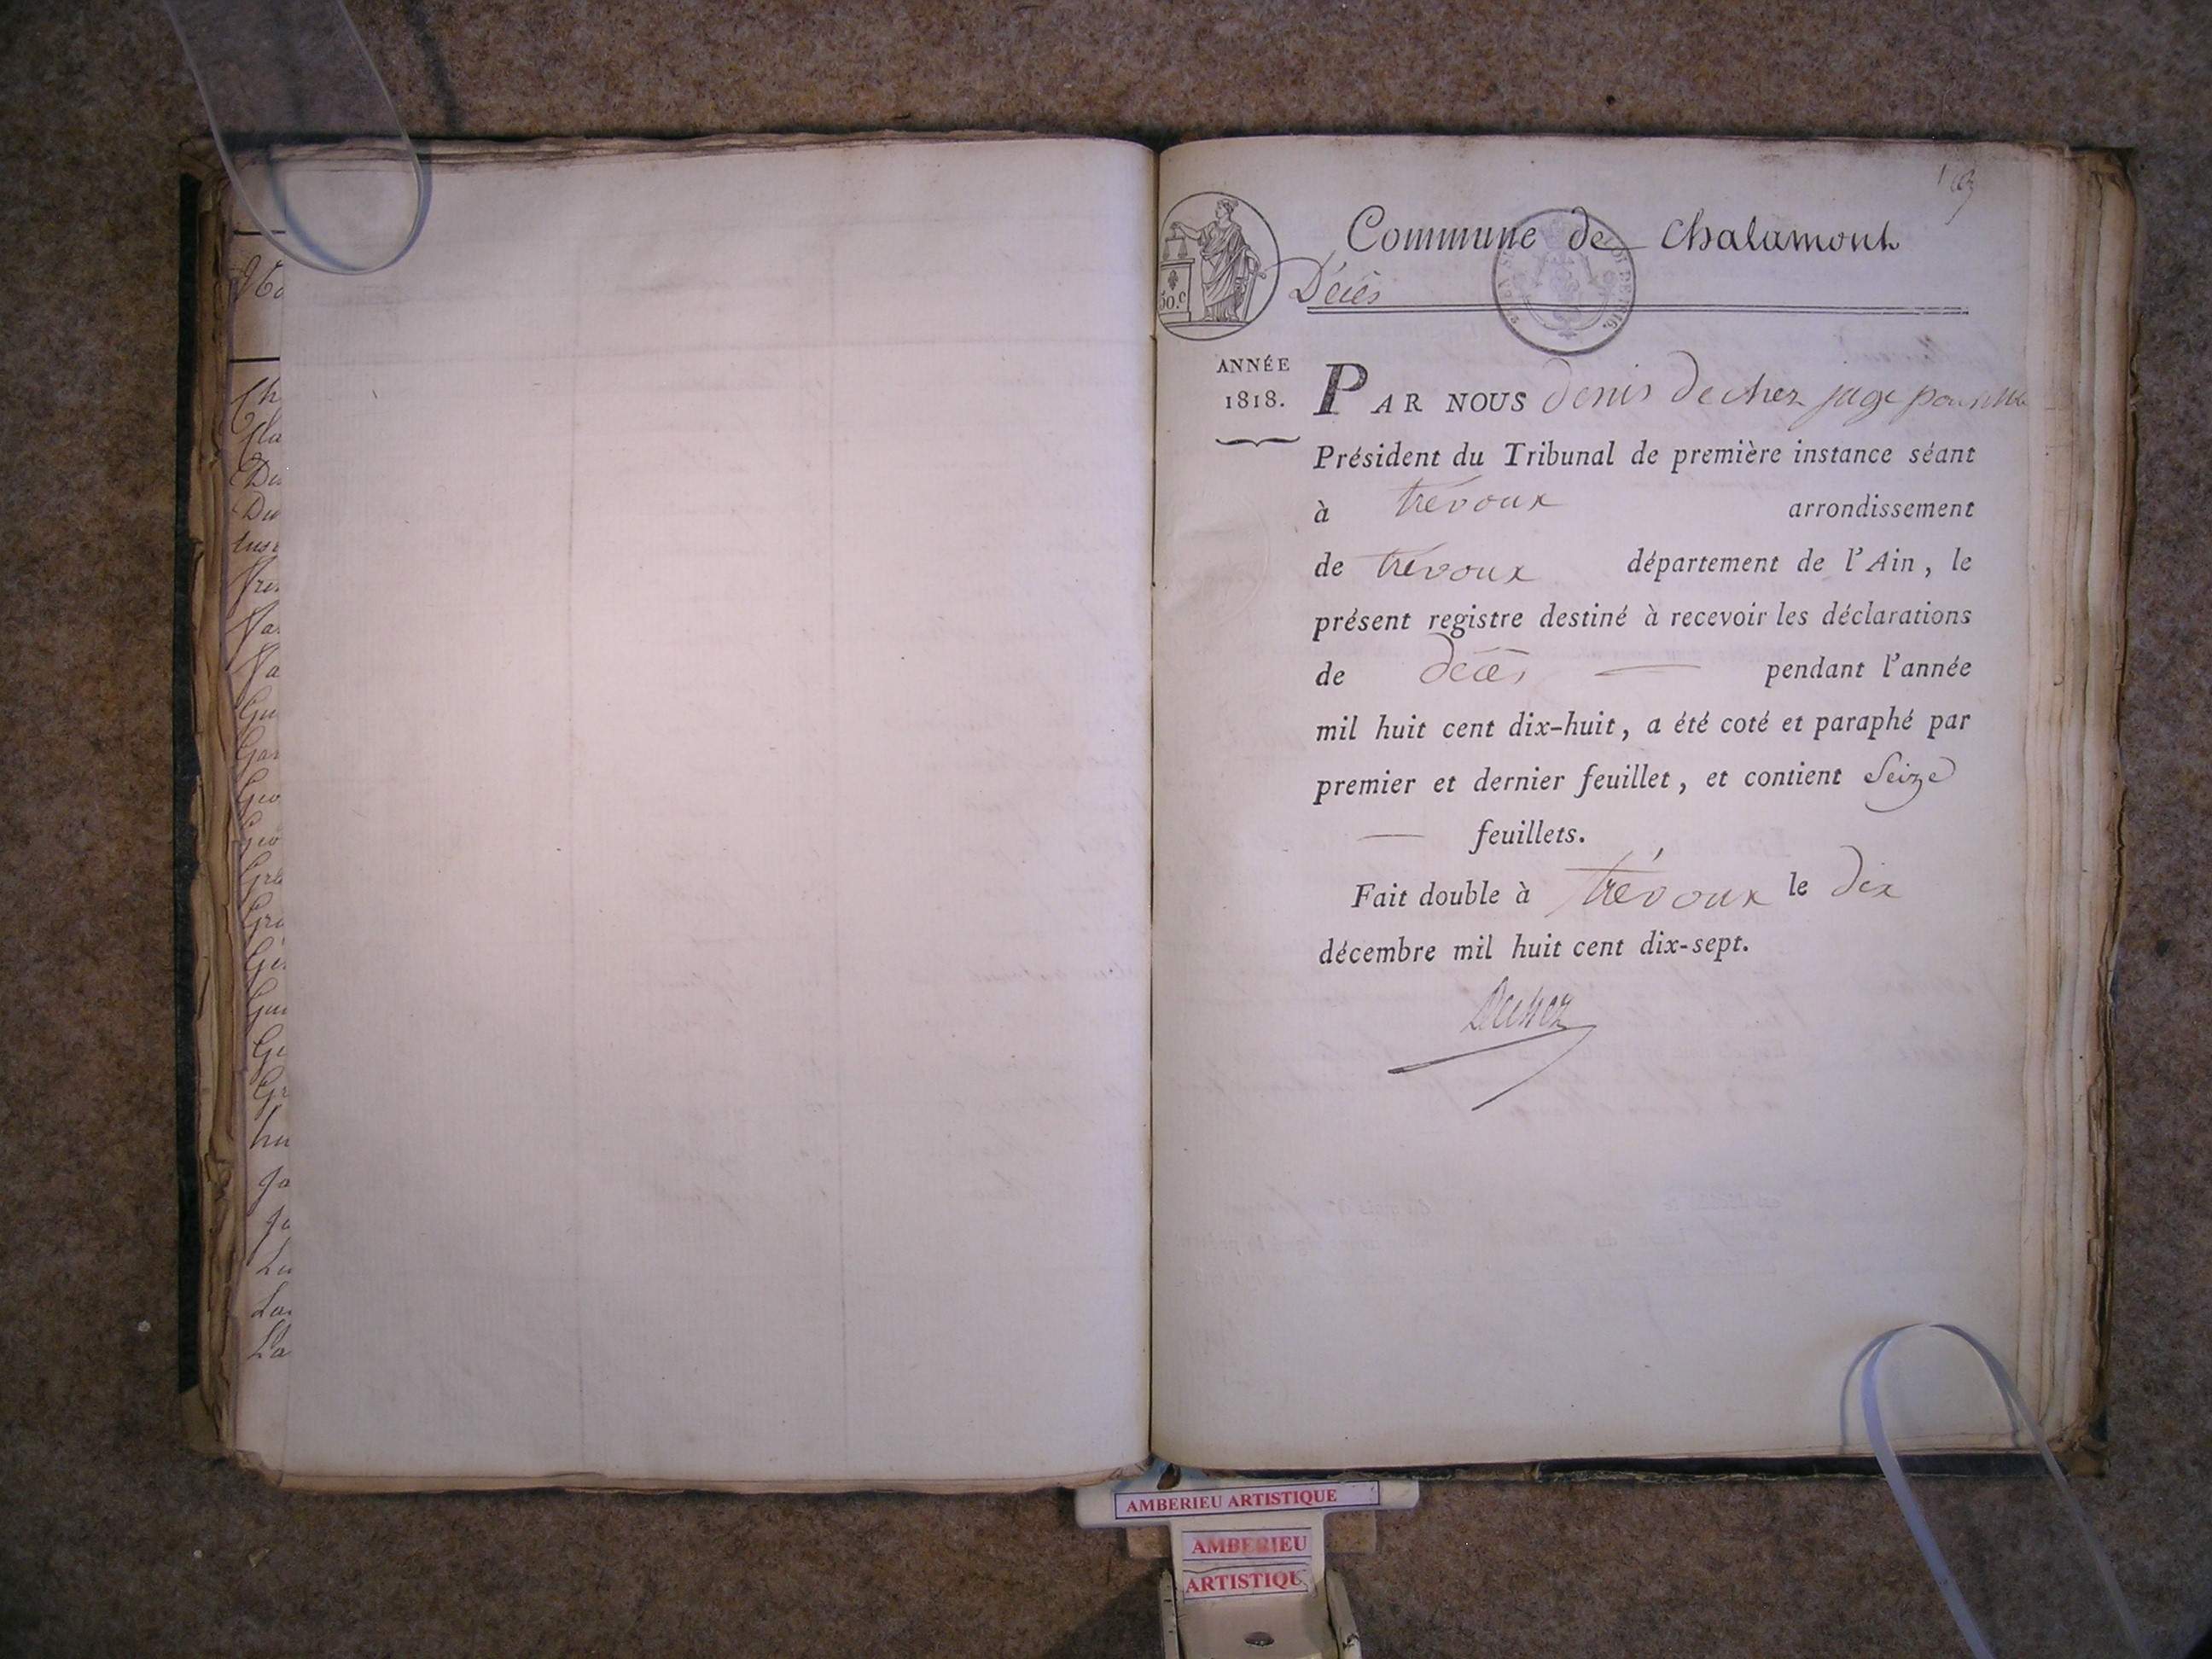 Ch
Cla
Du
Du
Va
Gu
Gar
Geo
Geo
Gra
Gui
Ge
Gr
hu
Ja
La
La
Commune de Chalamont
Décès
50.c
ANNÉE
1818.
PAR NOUS denis Dechez juge pour M.
Président du Tribunal de première instance séant
à trévoux arrondissement
de trévoux département de l'Ain, le
présent registre destiné à recevoir les déclarations
de décès — pendant l'année
mil huit cent dix-huit, a été coté et paraphé par
premier et dernier feuillet, et contient Seize
— feuillets.
Fait double à trévoux le dix
décembre mil huit cent dix-sept.
Dechez
AMBERIEU ARTISTIQUE
AMBERIEU
ARTISTIQU